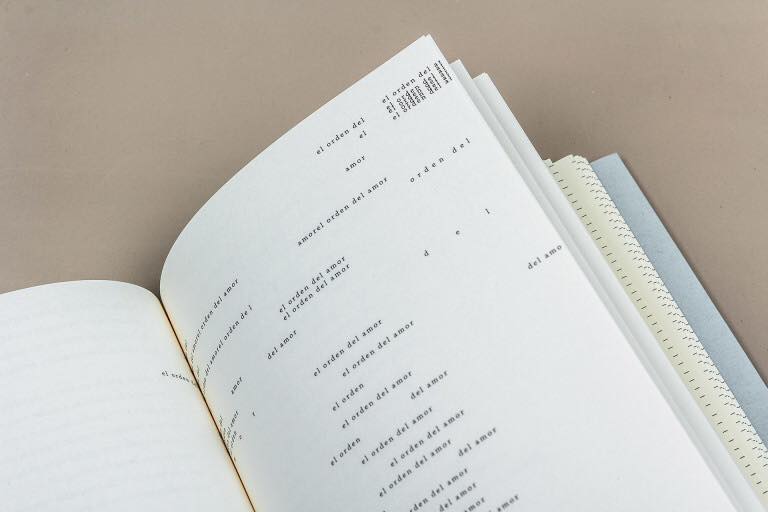 el orden del
el orden del
el
amor
orden del
amorel orden del amor
d e l
del amo
el orden del amor
el orden del amor
amorel orden del amor
del amorel orden de l
del amor
el orden del amor
el orden del amor
el orden
amor
el orden
el orden del amor
del amor
el orden del amor
el orden
el orden del amor
el orden del amor
del amor
el orden del amor
del amor